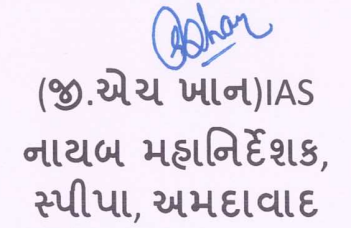 (જી.એચ ખાન)IAS
નાયબ મહાનિર્દેશક,
સ્પીપા, અમદાવાદ